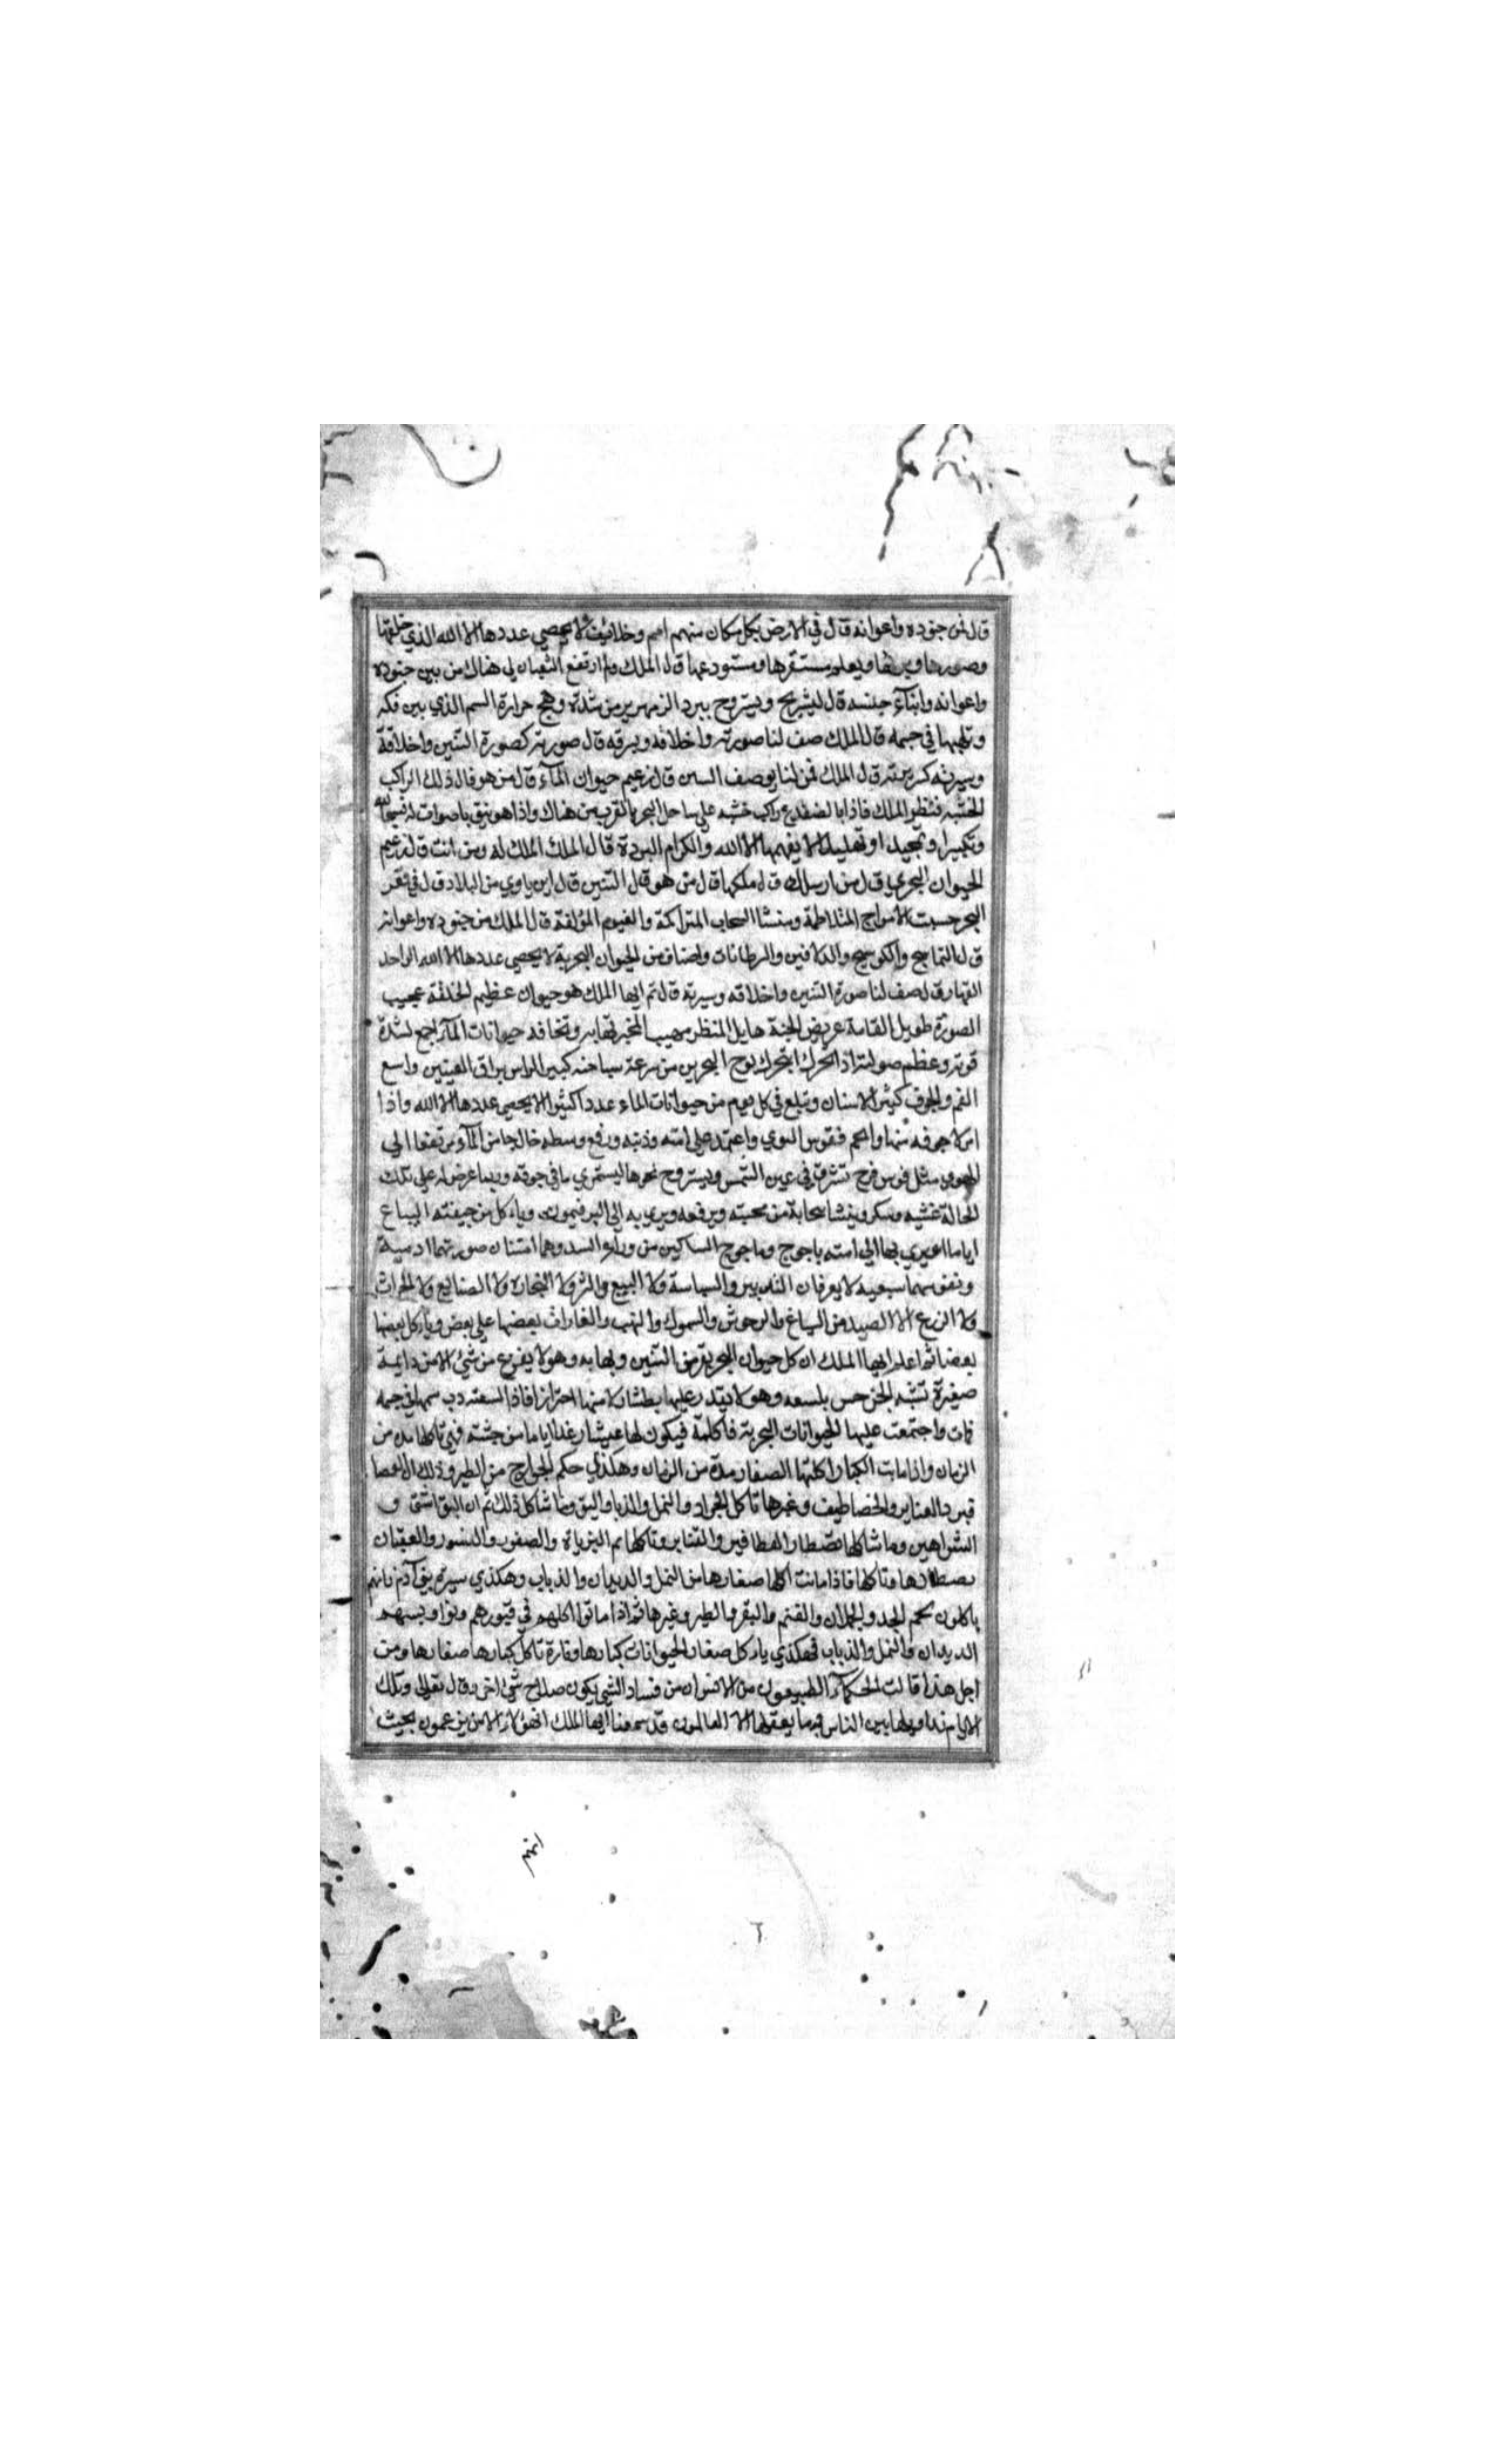 قال فمن جنوده واعوانه قال في الارض بكل مكان منهم امم وخلائيف لا يحصي عددها الا الله الذي خلقها
وصورها ويعلم مستقرها ومستودعها قال الملك ولم ارتفع الثعبان الي هناك من بين جنوده
واعوانه وابنآء جنسه قال ليشريح ويستروح ببرد الزمهرير من شدة وهج حرارة السم الذي بين فكه
وتلهبها في جسمه قال الملك صف لنا صورته واخلاقه وسيرته قال صورته كصورة التنين واخلاقه
وسيرته كسيرته قال الملك فمن لنا يوصف التنين قال زعيم حيوان المآء قال من هو قال ذلك الراكب
الخشبه فنظر الملك فاذا بالضفدع راكب خشبه علي ساحل البحر بالقرب من هناك واذا هو ينق باصوات له تسبيحا لله
وتكبيرا وتمجيدا وتهليلا لا يفهمها الا الله والكرام البررة قال الملك الملك له ومن انت قال زعيم
الحيوان البحري قال من ارسلك قال ملكها قال من هو قال التنين قال اين ياوي من البلاد قال في قعر
البحر حيث الامواج المتلاطمة ومنشا السحاب المتراكمة والغيوم المؤلفة قال الملك من جنوده واعوانه
قال التماسيح والكوسيج والدلافين والسرطانات واصناف من الحيوان البحرية لا يحصي عددها الا الله الواحد
القهار قال صف لنا صورة التنين واخلاقه وسيرته قال نعم ايها الملك هو حيوان عظيم الخلقه عجيب
الصورة طويل القامة عريض الجثة هايل المنظر مهيب المخبر تهابه وتخافه حيوانات المآء اجمع لشدة
قوته وعظم صولته اذا تحرك تموج البحر من سرعة سباحته كبير الراس براق العينين واسع
الفم والجوف كثير الاسنان ويبلع في كل يوم من حيوانات الماء عددا كثيرا لا يحصي عددها الا الله واذا
امتلا جوفه منها واتخم تقوس التوي واعتمد علي راسه وذنبه ورفع وسطه خارجا من المآء مرتفعا الي
الهوي مثل قوس قزح تشرق في عين الشمس ويستروح نحوها ليستمري ما في جوفه وربما عرض له علي تلك
الحالة غشيه وسكر وينشا سحابة من تحته وترفعه ويرمي به الي البر فيموت وياءكل من جيفته السباع
اياما او يرمي بها الي امته ياجوج وماجوج الساكين من وراء السد وهما امتنان صورتهما ادمية
ونفوسهما سبعيه لا يعرفان التدبير والسياسة ولا البيع والشرا ولا التجارة ولا الصنايع ولا الحراث
ولا الزرع الا الصيد من السباع والوحوش والسموك والنهب والغارات بعضها علي بعض وياءكل بعضها
بعضا ثم اعلم ايها الملك ان كل حيوان البحرية من التنين ويهابه وهو لا يفزع من شئ الا من دابة
صغيرة تشبه الجرجس يلسعه وهو لا يقدر عليها بطشا ولا منها احترازا فاذا لسعته دب سمها في جسمه
فمات واجتمعت عليها الحيوانات البحرية فاكلته فيكون لها عيشا رغدا اياما من جثته فهي تاكلها مدة من
الزمان واذا ماتت الكبار اكلتها الصغار مدة من الزمان وهكذي حكم الجوارح من الطير وذلك ان العصا
فير والقنابر والخطاطيف وغيرها تاكل الجراد والنمل والذباب والبق وما شاكل ذلك ثم ان البواشق و
الشواهين وما شاكلها تصطاد العصافير والقنابر وتاكلها ثم البزياة والصقور والنسور والعقبان
تصطادها وتاكلها فاذا ماتت اكلها صغارها من النمل والديدان والذباب وهكذي سيرة بني آدم فانهم
ياكلون لحم الجدي والحملان والغنم والبقر والطير وغيرها ثم اذا ماتوا اكلهم في قبورهم وتوابيتهم
الديدان والنمل والذباب فهكذي ياءكل صغار الحيوانات كبارها وتارة تاكل كبارها صغارها ومن
اجل هذا قالت الحكمآء الطبيعيون من الانس ان من فساد الشي يكون صلاح شئ اخر وقال تعالي وتلك
الايام نداولها بين الناس وما يعقلها الا العالمون وقد سمعنا ايها الملك ان هؤلاء الانس يزعمون بحيث